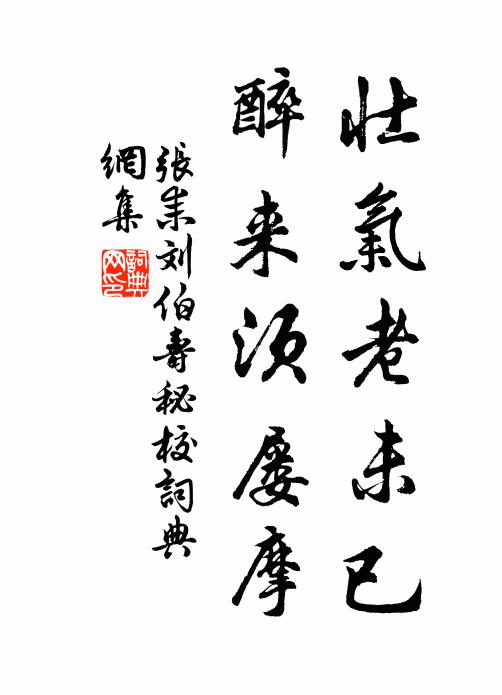 壮氣老未已
醉来须屡摩
張耒刘伯壽秘校詞典
網集
詞典網印